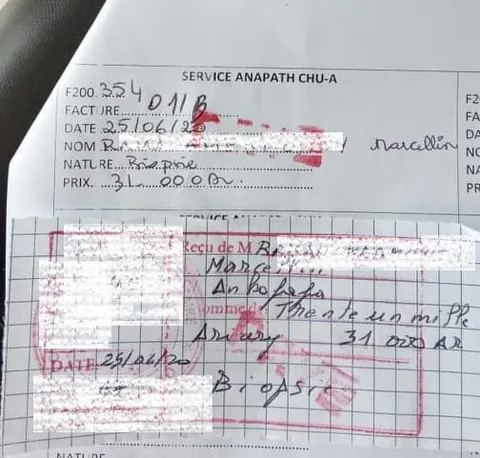 SERVICE ANAPATH CHU-A
F200.354
FACTURE D11B
DATE 25/06/20
NOM Marcellin
NATURE Biopsie
PRIX. 31 000 Ar.
F2
FA
DA
NO
NA
PR
Reçu de M
Marcellin
Ankofafa
somme de Trente un mille
Ariary 31 000 AR
DATE 25/06/20
Biopsie
NATURE